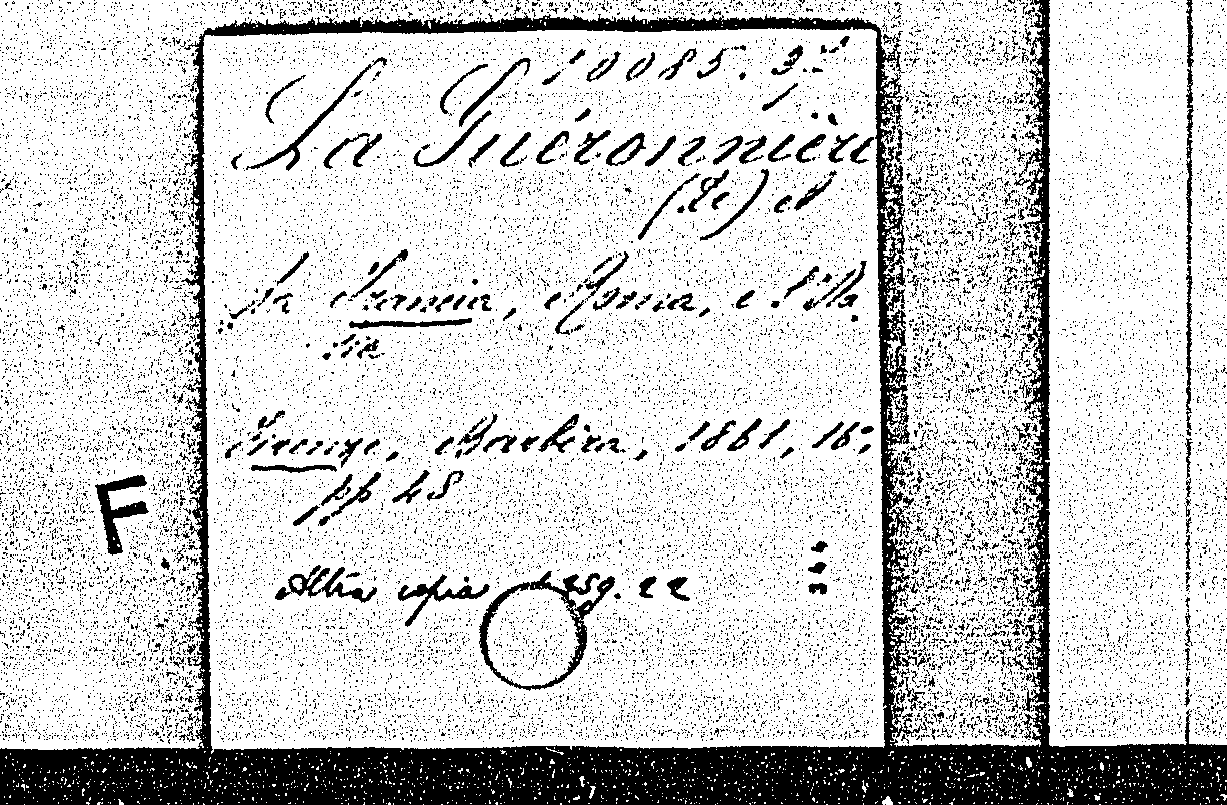 10085. 32
La Guéronnière
(De) A
La Francia, Roma, e l'Ita
lia
Firenze, Barbèra, 1861, 16°,
pp 48
F
Altra copia 1259. 22